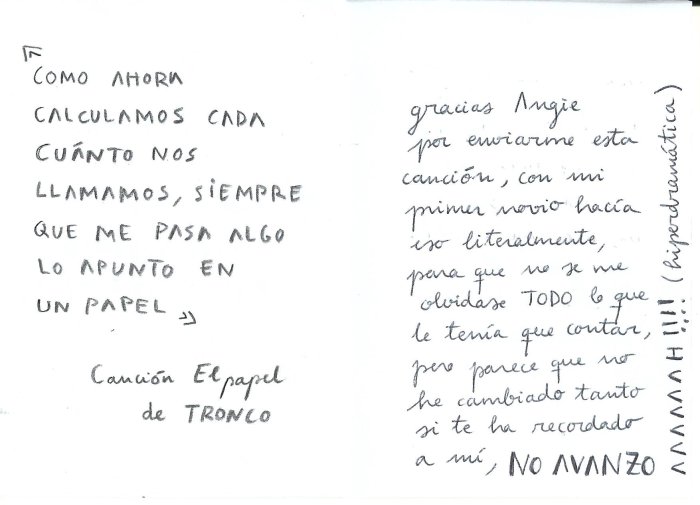 «COMO AHORA
CALCULAMOS CADA
CUÁNTO NOS
LLAMAMOS, SIEMPRE
QUE ME PASA ALGO
LO APUNTO EN
UN PAPEL»
Canción El papel
de TRONCO
gracias Angie
por enviarme esta
canción, con mi
primer novio hacía
eso literalmente,
para que no se me
olvidase TODO lo que
le tenía que contar,
pero parece que no
he cambiado tanto
si te ha recordado
a mí, NO AVANZO
AAAAAAAH!!!! (hiperdramática)